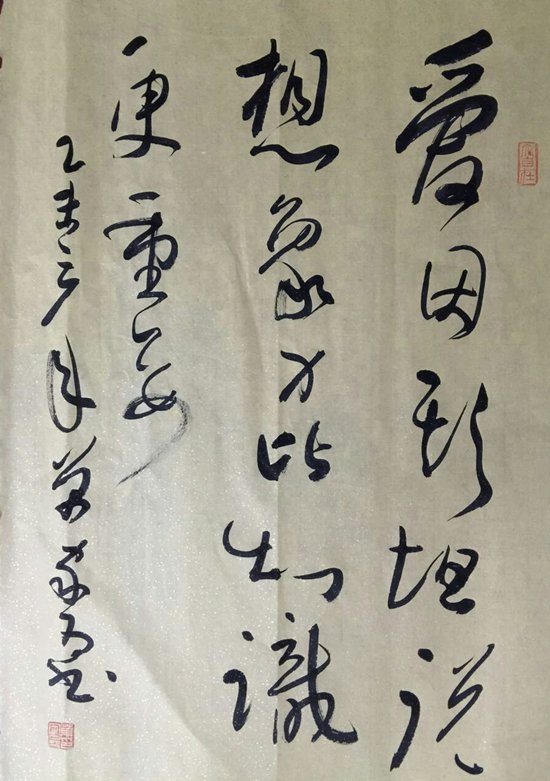 爱因斯坦说
想象力比知识
更重要
乙未